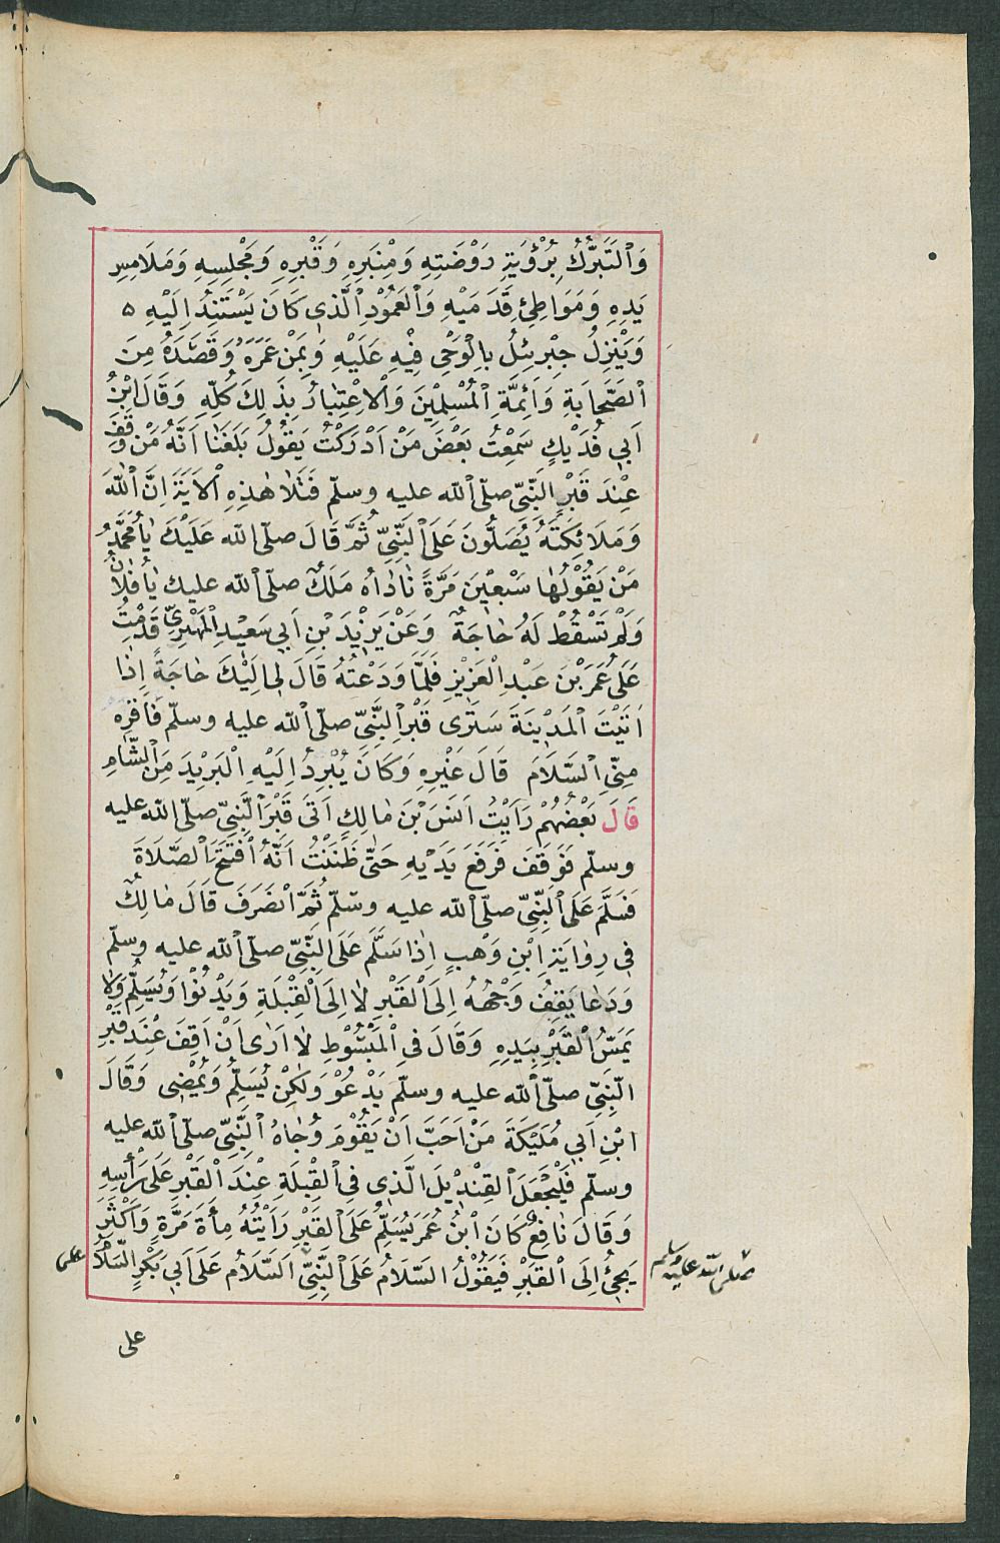 وَالْتَبَرُّكُ بِرُؤْيَةِ رَوْضَتِهِ وَمِنْبَرِهِ وَقَبْرِهِ وَمَجْلِسِهِ وَمَلَامِسِ
يَدِهِ وَمَوَاطِئِ قَدَمَيْهِ وَالْعَمُوْدِ الَّذِى كَانَ يَسْتَنِدُ اِلَيْهِ ۵
وَيَنْزِلُ جِبْرِيْلُ بِالْوَحْىِ فِيْهِ عَلَيْهِ وَبِمَنْ عَمَرَهُ وَقَصَدَهُ مِنَ
الصَّحَابَةِ وَاَئِمَّةِ الْمُسْلِمِيْنَ وَالْاِعْتِبَارُ بِذَلِكَ كُلِّهِ وَقَالَ ابْنُ
اَبِى فُدَيْكٍ سَمِعْتُ بَعْضَ مَنْ اَدْرَكْتُ يَقُوْلُ بَلَغَنَا اَنَّهُ مَنْ وَقَفَ
عِنْدَ قَبْرِ النَّبِىِّ صلّى الله عليه وسلّم فَتَلَا هٰذِهِ الْاٰيَةَ اِنَّ اللّٰهَ
وَمَلَائِكَتَهُ يُصَلُّوْنَ عَلَى النَّبِىِّ ثُمَّ قَالَ صلّى الله عَلَيْكَ يَامُحَمَّدُ
مَنْ يَقُوْلُهَا سَبْعِيْنَ مَرَّةً نَادَاهُ مَلَكٌ صلّى الله عليك يَافُلَانُ
وَلَمْ تَسْقُطْ لَهُ حَاجَةٌ وَعَنْ يَزِيْدَ بْنِ اَبِى سَعِيْدِ الْمَهْرِىِّ قَدِمْتُ
عَلَى عُمَرَ بْنِ عَبْدِ الْعَزِيْزِ فَلَمَّا وَدَعْتُهُ قَالَ لِى اِلَيْكَ حَاجَةٌ اِذَا
اَتَيْتَ الْمَدِيْنَةَ سَتَرَى قَبْرَ النَّبِىِّ صلّى الله عليه وسلّم فَاَقْرِه
مِنِّى السَّلَامَ قَالَ غَيْرِهِ وَكَانَ يُبْرِدُ اِلَيْهِ الْبَرِيْدَ مِنَ الشَّامِ
قَالَ بَعْضُهُمْ رَاَيْتُ اَنَسَ بْنَ مَالِكٍ اَتَى قَبْرَ النَّبِىِّ صلّى الله عليه
وسلّم فَوَقَفَ فَرَفَعَ يَدَيْهِ حَتّٰى ظَنَنْتُ اَنَّهُ افْتَتَحَ الصَّلَاةَ
فَسَلَّمَ عَلَى النَّبِىِّ صلّى الله عليه وسلّم ثُمَّ انْصَرَفَ قَالَ مَالِكٌ
فِى رِوَايَةِ ابْنِ وَهْبٍ اِذَا سَلَّمَ عَلَى النَّبِىِّ صلّى الله عليه وسلّم
وَدَعَا يَقِفُ وَجْهُهُ اِلَى الْقَبْرِ لَا اِلَى الْقِبْلَةِ وَيَدْنُوْا وَيُسَلِّمُ وَلَا
يَمَسُّ الْقَبْرَ بِيَدِهِ وَقَالَ فِى الْمَبْسُوْطِ لَا اَرٰى اَنْ اَقِفَ عِنْدَ قَبْرِ
النَّبِىِّ صلّى الله عليه وسلّم يَدْعُوْ وَلٰكِنْ يُسَلِّمُ وَيُمْضِى وَقَالَ
ابْنِ اَبِى مُلَيْكَةَ مَنْ اَحَبَّ اَنْ يَقُوْمَ وُجَاهَ النَّبِىِّ صلّى الله عليه
وسلّم فَلْيَجْعَلِ الْقِنْدِيْلَ الَّذِى فِى الْقِبْلَةِ عِنْدَ الْقَبْرِ عَلَى رَأْسِهِ
وَقَالَ نَافِعٌ كَانَ ابْنُ عُمَرَ يُسَلِّمُ عَلَى الْقَبْرِ رَاَيْتُهُ مِأَةَ مَرَّةٍ وَاَكْثَرَ
يَجِئُ اِلَى الْقَبْرِ فَيَقُوْلُ السَّلَامُ عَلَى النَّبِىِّ اَلسَّلَامُ عَلَى اَبِى بَكْرٍ السَّلَامُ على
صلى الله عليه وسلم
على